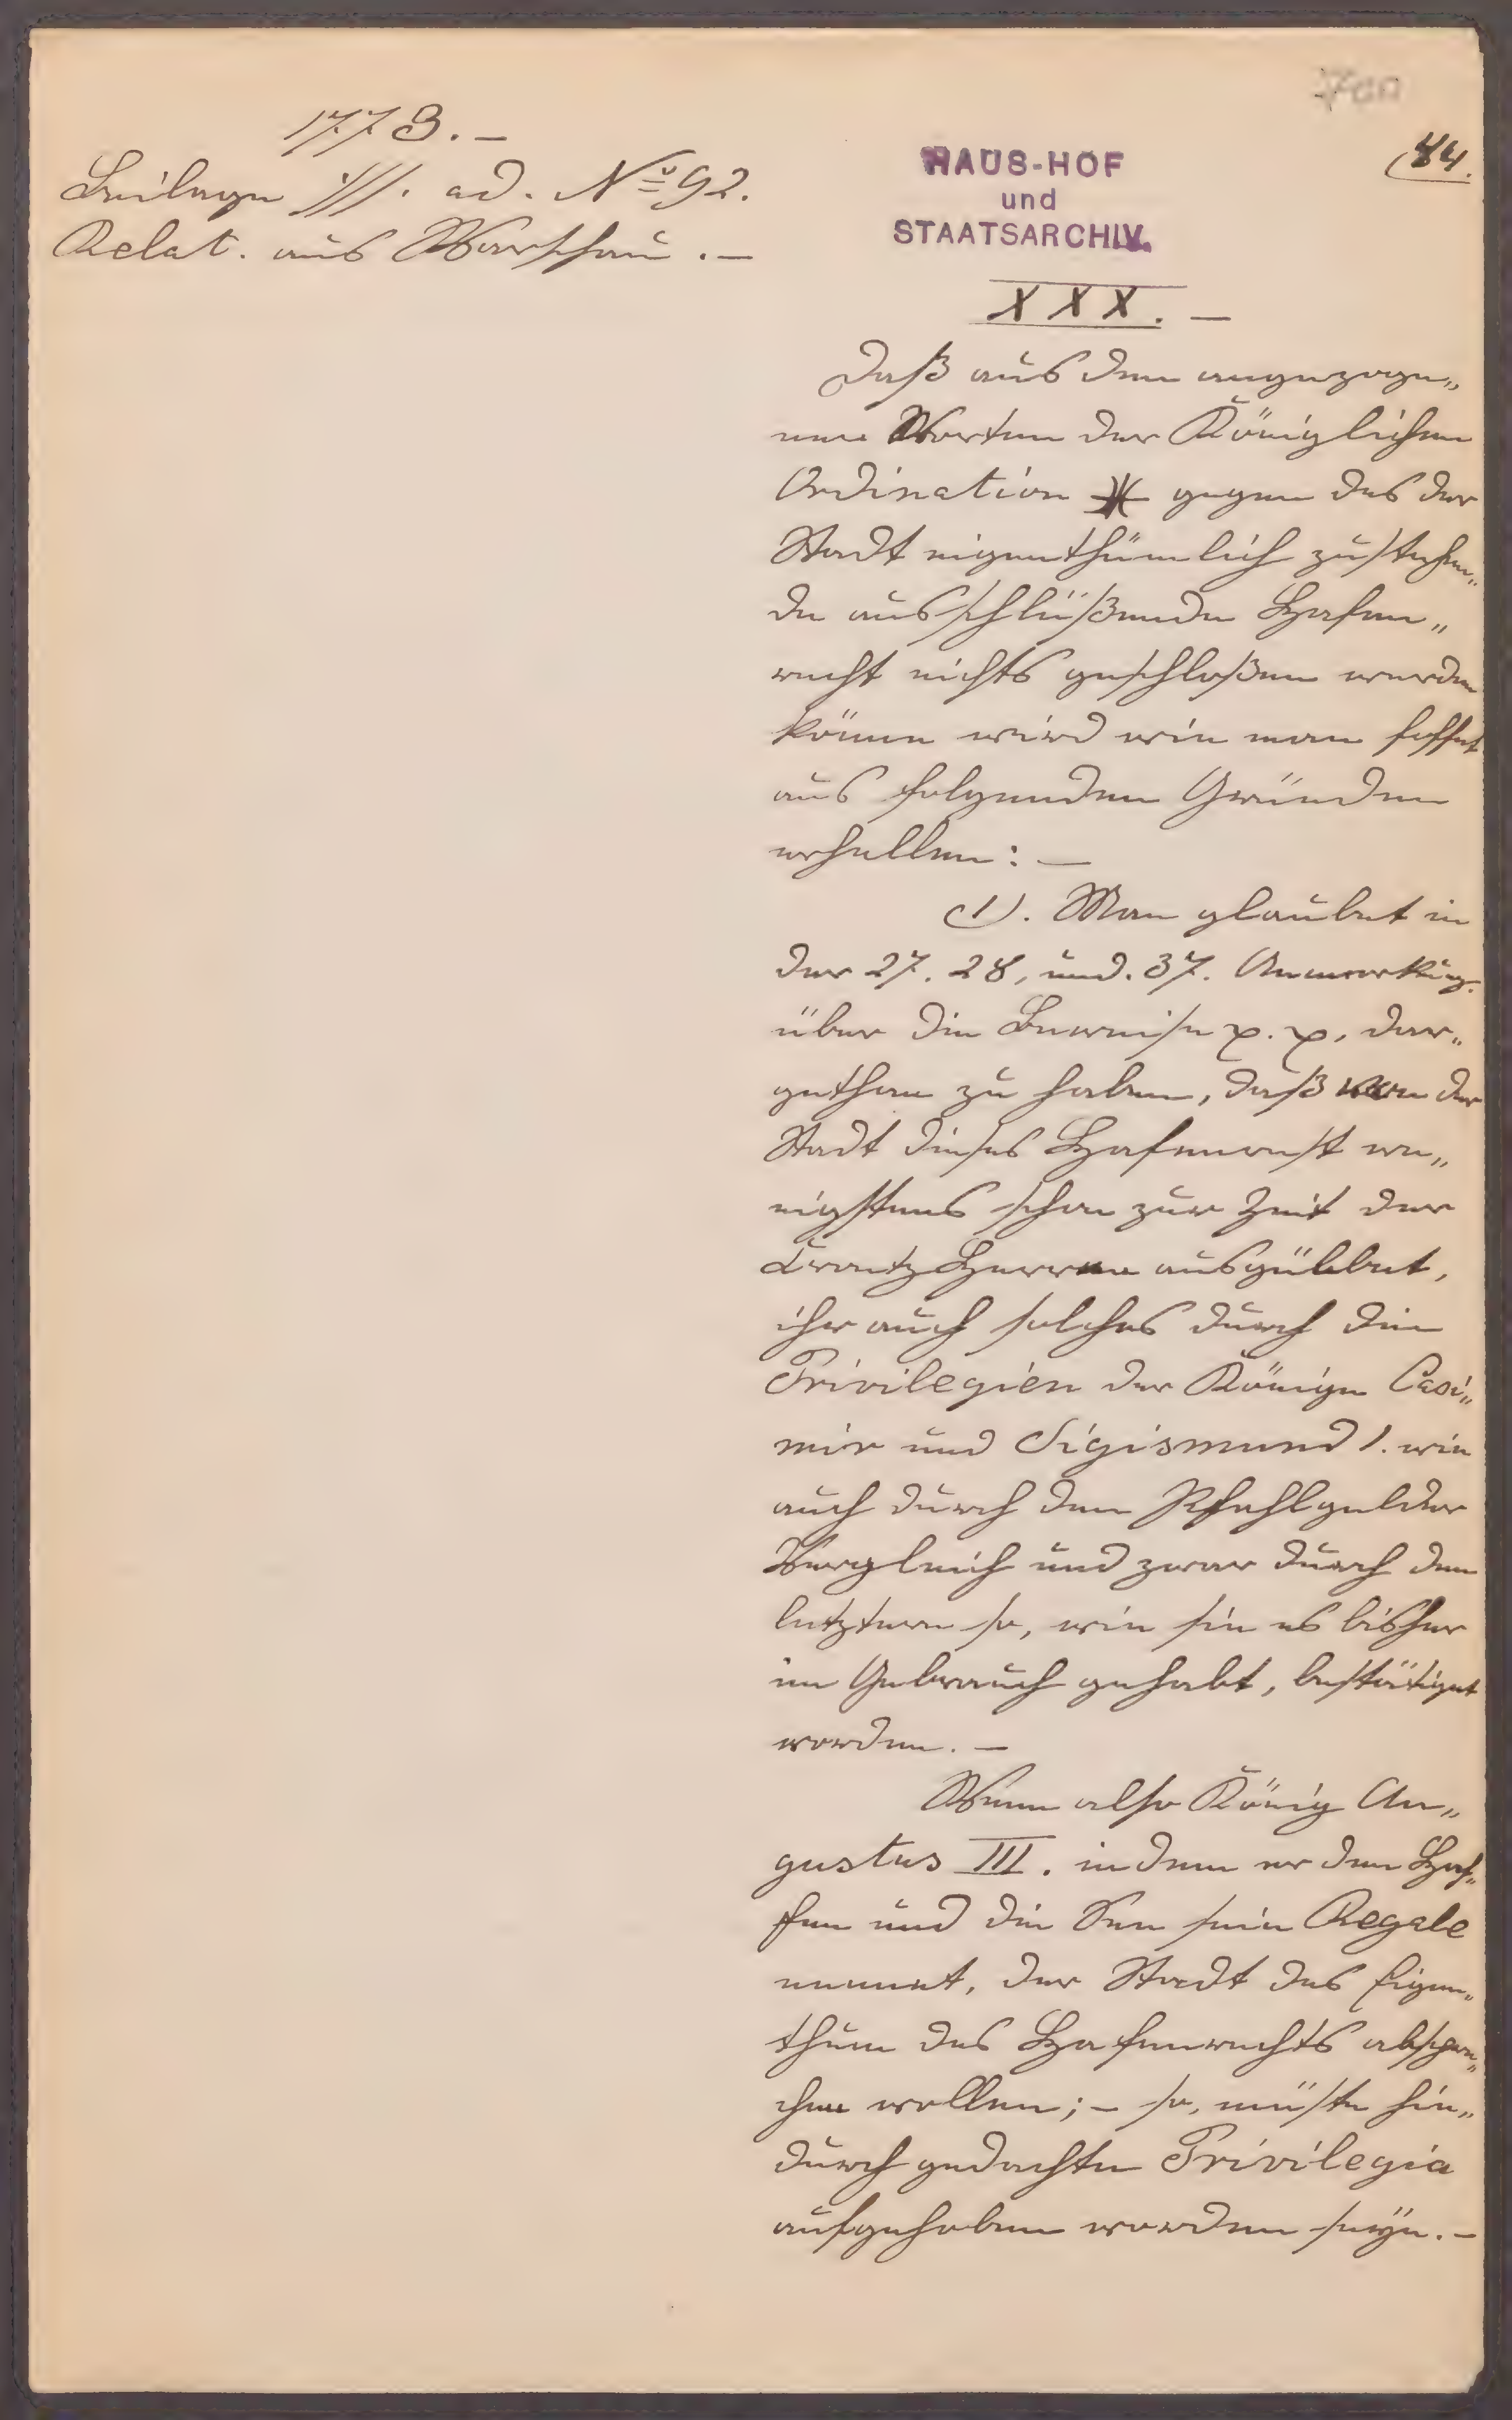 1773.—
Beilage ·///. ad. Nro 92.
Relat. aus Warschau.—
HAUS-HOF
und
STAATSARCHIV.
84.
XXX.—
Daß aus den angezoge„
nen Worten der Königlichen
Ordination gegen das der
Stadt eigenthümlich zustehen„
de ausschlüßende Hafen„
recht nichts geschloßen werden
könne wird wie man hoffet
aus folgenden Gründen
erhellen: —
1). Man glaubet in
der 27. 28, und. 37. Anmerkūg.
über die Beweise p. p. dar„
gethan zu haben, daß von der
Stadt dieses Hafenrecht we„
nigstens schon zur Zeit der
Creutz Herren ausgüebet,
ihr auch solches durch die
Privilegien der Könige Casi„
mir und Sigismund 1. wie
auch durch den Pfahlgelder
Vergleich und zwar durch den
letztern so, wie sie es bisher
im Gebrauch gehabt, bestätiget
worden. —
Wenn also König Au„
gustus III. indem er den Haf„
fen und die See sein Regale
nennet, der Stadt das Eigen„
thum des Hafenrechts abspre„
chen wollen; – so, müste hie„
durch gedachte Privilegia
aufgehoben worden seÿn. –